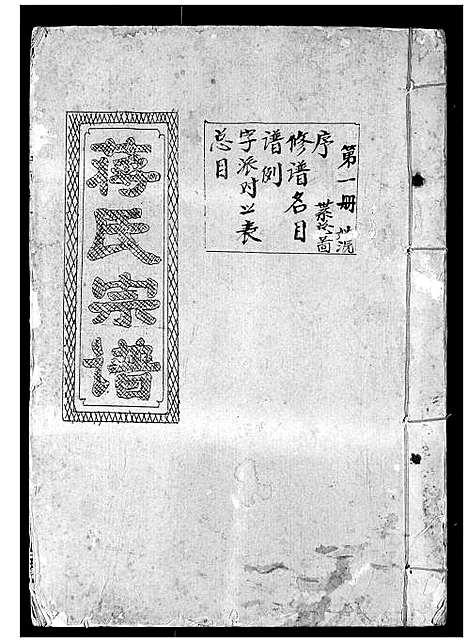 第一册
序
修谱名目
谱例
字派对照表
总目
蒋氏宗谱